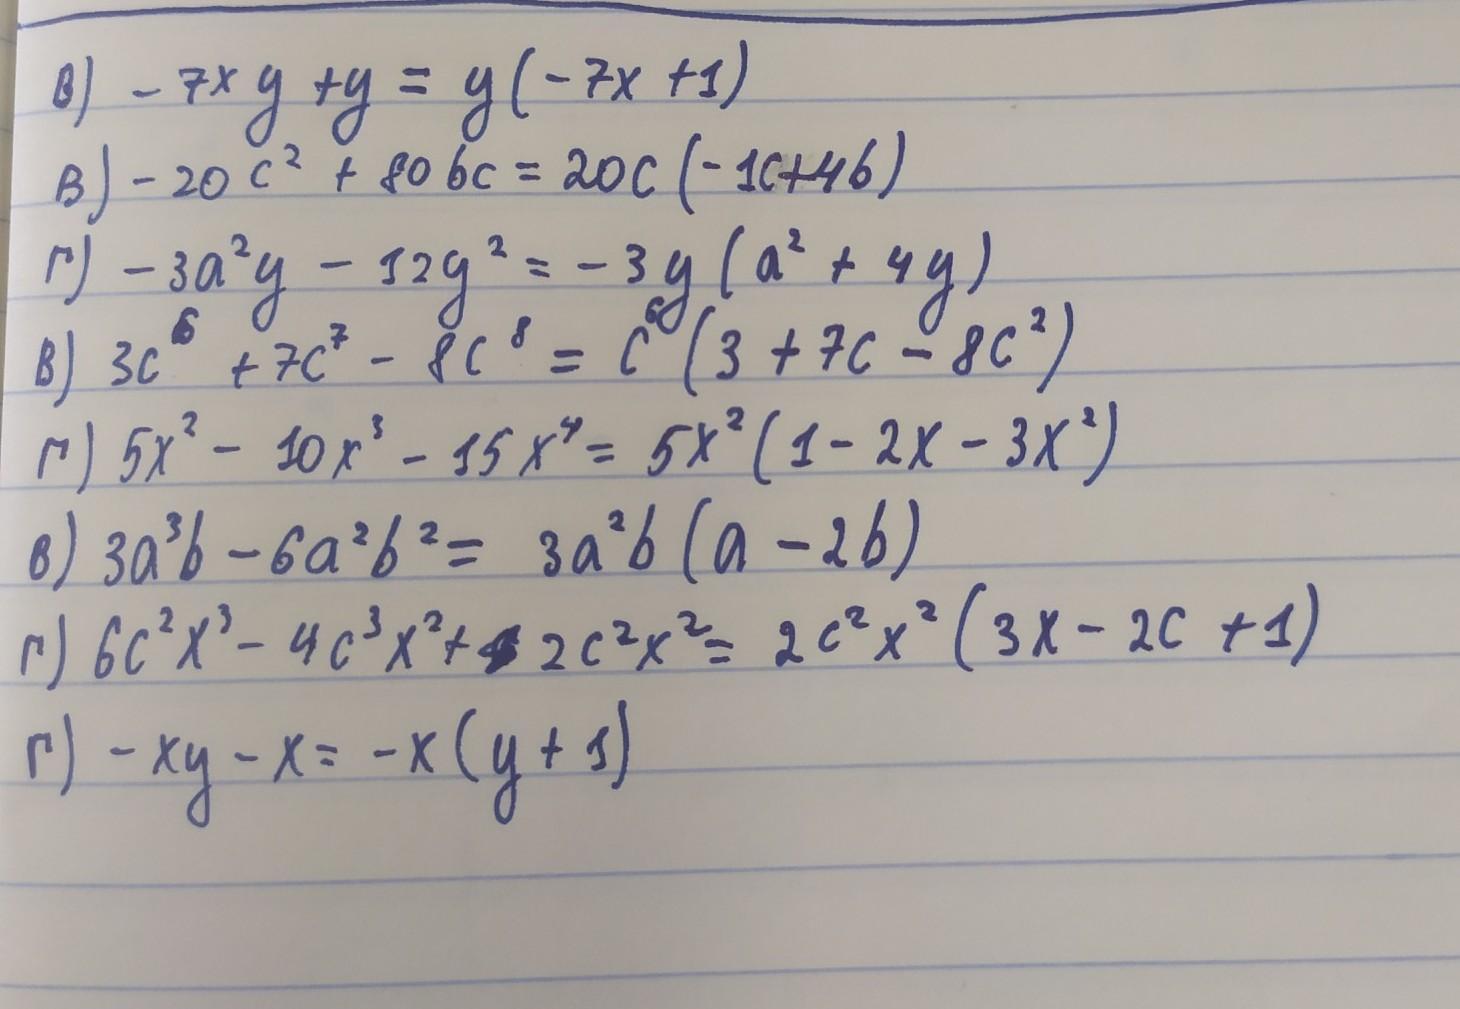 в) -7xy + y = y(-7x + 1)
в) -20c² + 80bc = 20c(-1c+4b)
г) -3a²y - 12y² = -3y(a² + 4y)
в) 3c⁶ + 7c⁷ - 8c⁸ = c⁶(3 + 7c - 8c²)
г) 5x² - 10x³ - 15x⁴ = 5x²(1 - 2x - 3x²)
в) 3a³b - 6a²b² = 3a²b(a - 2b)
г) 6c²x³ - 4c³x² + 2c²x² = 2c²x²(3x - 2c + 1)
г) -xy - x = -x(y + 1)